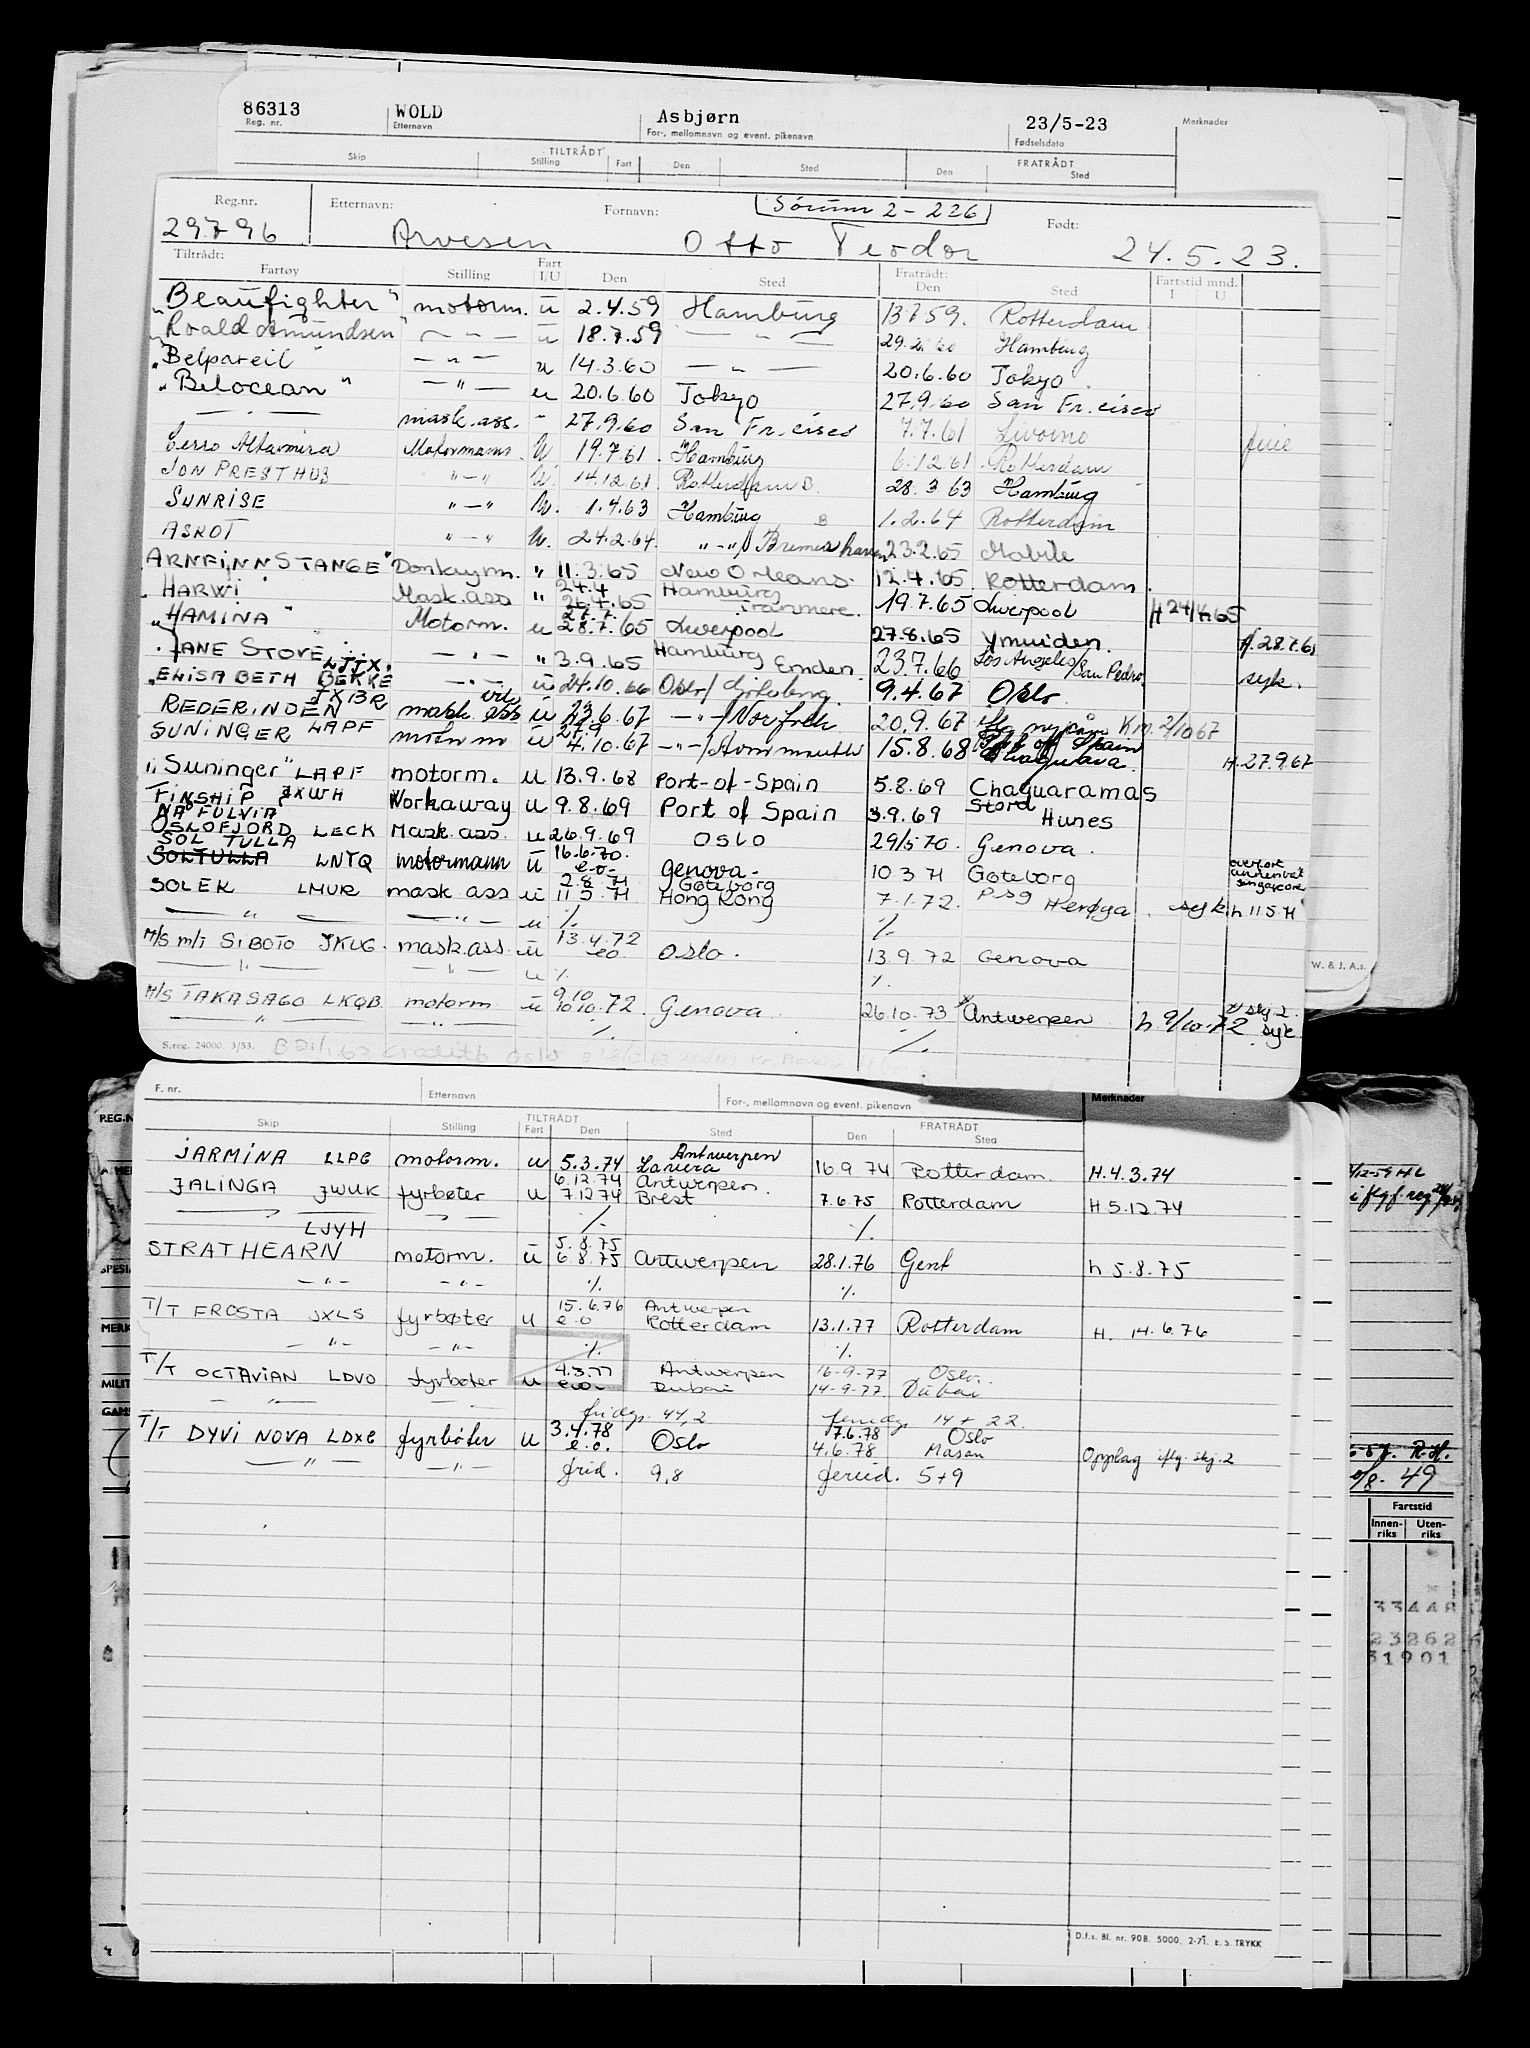 86313 WOLD Asbjørn 23/5-23
Reg. nr. Etternavn For-, mellomnavn og event. pikenavn Fødselsdato Merknader
TILTRÅDT FRATRÅDT
Skip Stilling Fart Den Sted Den Sted
Reg.nr. Etternavn: Fornavn: Sørum 2-226 Født:
29796 Arvesen Otto Teodor 24.5.23.
Tiltrådt: Fratrådt:
Fartøy Stilling Fart I/U Den Sted Den Sted Fartstid mnd. I U
"Beaufighter" motorm. u 2.4.59 Hamburg 13.7.59. Rotterdam
"Roald Amundsen" — " — u 18.7.59 — " — 29.2.60 Hamburg
"Belpareil — " — u 14.3.60 — " — 20.6.60 Tokyo
"Belocean" — " — u 20.6.60 Tokyo 27.9.60 San Fr.cisco
— " — mask.ass. " 27.9.60 San Fr.cisco 7.7.61 Livorno ferie
Cerro Altamira Motormann. U 19.7.61 Hamburg 6.12.61 Rotterdam
JON PRESTHUS " — " U. 14.12.61 Rotterdam B. 28.3.63 Hamburg
SUNRISE " — " U. 1.4.63 Hamburg B 1.2.64 Rotterdam
ASKOT " — " U. 24.2.64. " — " / Bremerhaven 23.2.65 Mobile
ARNFINN STANGE" Donkeym. " 11.3.65 New Orleans. 12.4.65 Rotterdam.
" HARWI Mask.ass " 24.4 26.4.65 Hamburg Tranmere. 19.7.65 Liverpool H 24/4.65
"HAMINA" Motorm. u 27.7. 28.7.65 Liverpool 27.8.65 Ymuiden. H. 28.7.65
"JANE STOVE" LJTX. — " — " 3.9.65 Hamburg Emden. 23.7.66 Los Angeles/San Pedro. syk.
"ELISABETH BEKKE — " — u 24.10.66 Oslo/Gøteborg 9.4.67 Oslo
REDERINDEN JXBR mask ass u 23.6.67 — " — /Norfolk 20.9.67 K.M. 2/10 67
SUNINGER LAPF motorm u 27.9 4.10.67 — " — /Avonmouth 15.8.68 Port of Spain H. 27.9.67
"Suninger" LAPF motorm. u 13.9.68 Port-of-Spain 5.8.69 Chaguaramas
FINSHIP JXWH Workaway u 9.8.69 Port of Spain 3.9.69 Stord Hunes
NÅ FULVIA
OSLOFJORD LECK Mask.ass. u 26.9.69 OSLO 29/5-70. Genova.
SOL TULLA
SOLTULLA LNTQ motormann u 16.6.70. e.o. genova. 10 3 71 Gøteborg
SOLEK LMUR mask ass u 2.8 71 11.5.71 Gøteborg Hong Kong 7.1.72. P.sg Herøya. syk h 11.5.71
— " — — " — u ٪ ٪
M/S m/T SIBOTO JKUG. mask.ass. u 13.4.72 eo Oslo. 13.9.72 Genova
— " — — " — u ٪ ٪
M/S TAKASAGO LKQB. motorm u 9.10 10.10.72 Genova 26.10.73 Antwerpen h 9/10.72 syk
— " — — " — ٪ ٪
S.reg. 24000. 3/53.
W. & J. A.s.
F. nr. Etternavn For-, mellomnavn og event. pikenavn Merknader
TILTRÅDT FRATRÅDT
Skip Stilling Fart Den Sted Den Sted
JARMINA LLPG motorm. u 5.3.74 Antwerpen Lavera 16.9.74 Rotterdam. H. 4.3.74
JALINGA JWUK fyrbøter u 6.12.74 7.12 74 Antwerpen. Brest 7.6.75 Rotterdam H 5.12.74
— " — ٪ ٪
LJYH
STRATHEARN motorm. u 5.8.75 6.8.75 Antwerpen 28.1.76 Gent h 5.8.75
— " — — " — ٪ ٪
T/T FROSTA JXLS fyrbøter u 15.6.76 e.o Antwerpen Rotterdam 13.1.77 Rotterdam H. 14.6.76
— " — — " — ٪ ٪
T/T OCTAVIAN LDVO fyrbøter u 4.3.77 e.o. Antwerpen Dubai 16-9-77 14-9-77 Oslo. Dubai
— " — fridg. 44,2 feriedg. 14 + 22.
T/T DYVI NOVA LDXC fyrbøter u 3.4.78 e.o. Oslo 7.6.78 4.6.78 Oslo Masan Opplag iflg. skj. 2
— " — — " — frid. 9,8 feried. 5+9
D.f.s. Bl. nr. 90B. 5000. 2-71. E. S. TRYKK
REG.N
MERK
MILIT
57. R.H.
/8. 49
Fartstid
Innen-riks Uten-riks
33448
23262
31901